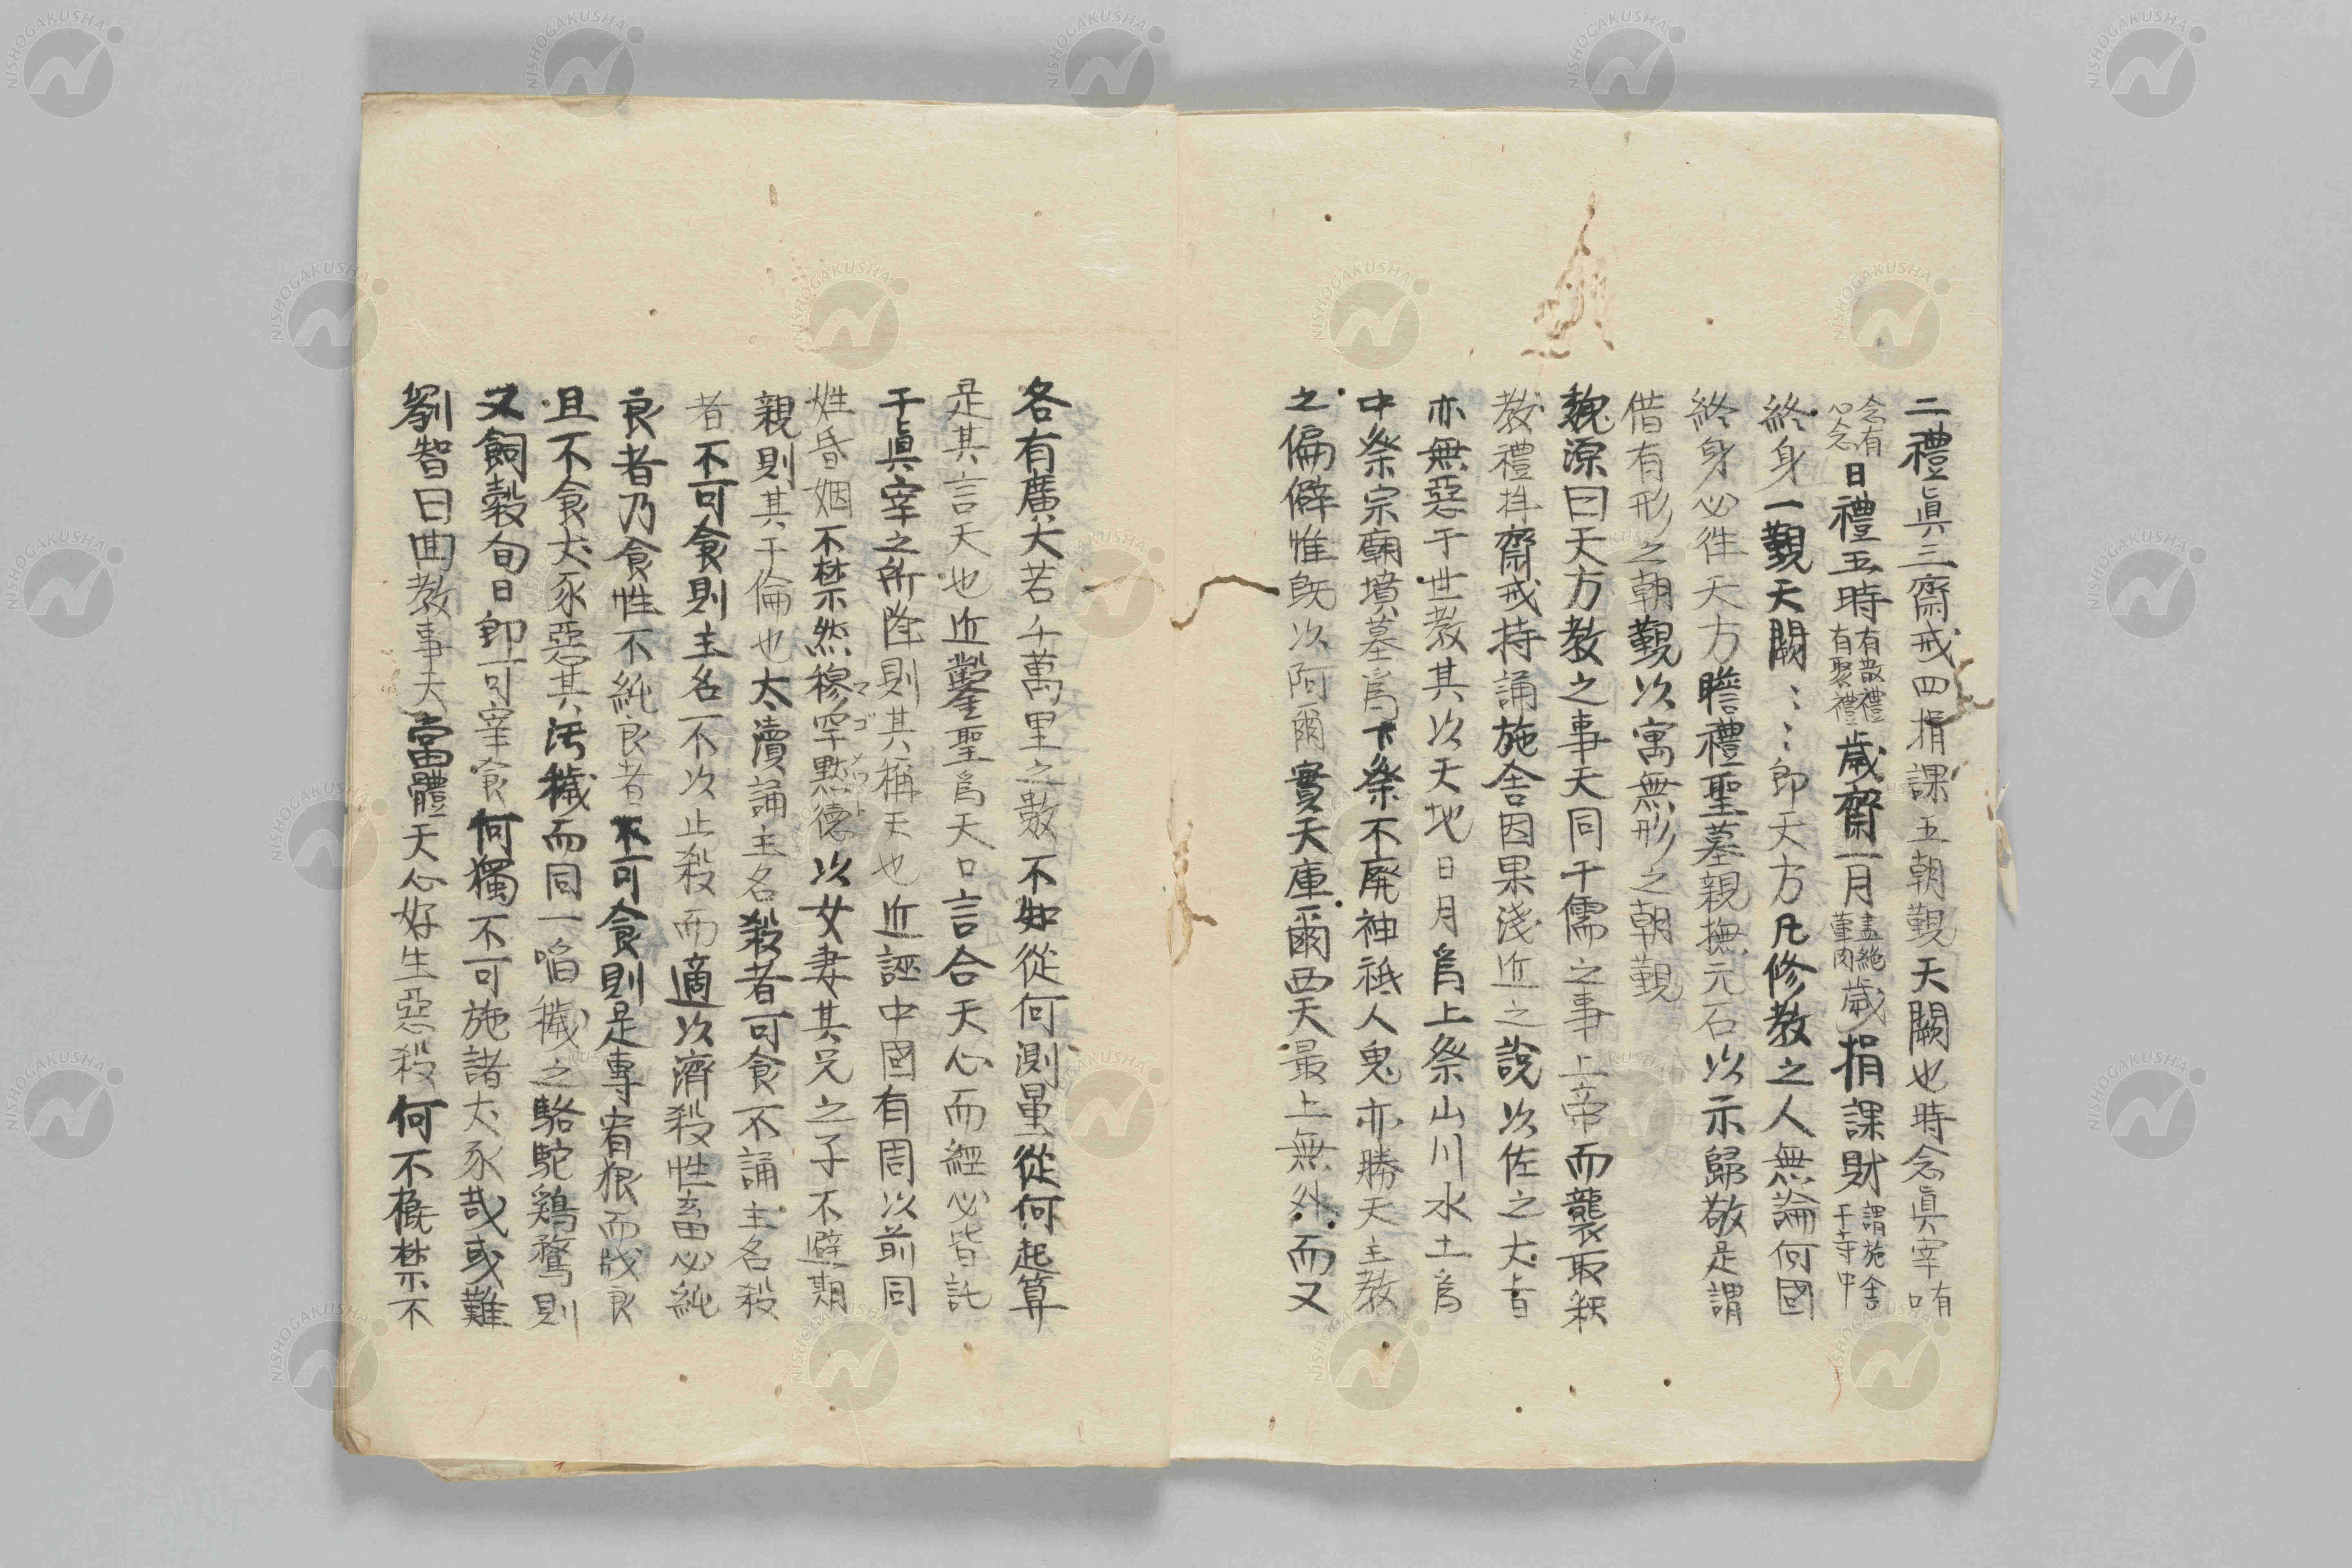 二禮眞三齋戒四捐課五朝覲天闕也時念眞宰有口
念有心念日禮五時有散禮有聚禮歲齋一月盡絶葷肉歲捐課財謂施舍于寺中
終身一覲天闕〻〻即天方凡修教之人無論何國
終身必徃天方瞻禮聖墓親撫元石以示歸敬是謂
借有形之朝覲以寓無形之朝覲
魏源曰天方教之事天同于儒之事上帝而襲取釈
教禮拜齋戒持誦施舍因果淺近之說以佐之大旨
亦無惡于世教其以天地日月爲上祭山川水土爲
中祭宗廟墳墓爲下祭不廃神祇人鬼亦勝天主教
之偏僻惟既以阿爾實天庫爾西天最上無外而又
各有廣大若千萬里之數不知從何測量從何起算
是其言天也近鑿聖爲天口言合天心而經必皆託
于眞宰之所降則其稱天也近誣中國有周以前同
姓昏姻不禁然穆罕黙德以女妻其兄之子不避期
マゴメット
親則其于倫也太瀆誦主名殺者可食不誦主名殺
者不可食則主名不以止殺而適以濟殺性畜必純
良者乃食性不純良者不可食則是專宥狠而戕良
且不食犬豕惡其汚穢而同一啗穢之駱駝鷄鶩則
又飼穀旬日即可宰食何獨不可施諸犬豕哉或難
劉智曰囬教事天當體天心好生惡殺何不概禁不
NISHOGAKUSHA